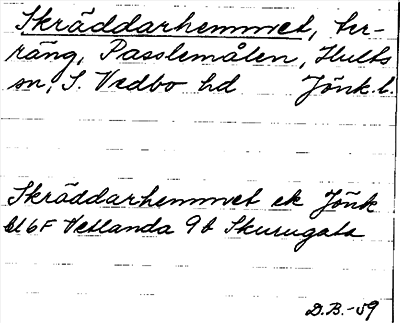 Skräddarhemmet, ter-
räng, Passlemålen, Hults
sn, S. Vedbo hd Jönk. l.
Skräddarhemmet ek Jönk
bl 6F Vetlanda 9b Skurugata
D.B. -59